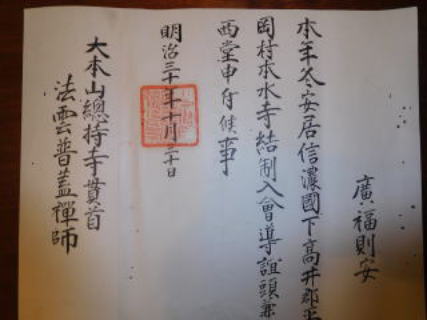 廣福則安
本年冬安居信濃國下高井郡
岡村本水寺結制入會導誼頭兼
西堂申付候事
明治三十年十月三十日
大本山總持寺貫首
法雲普蓋禪師